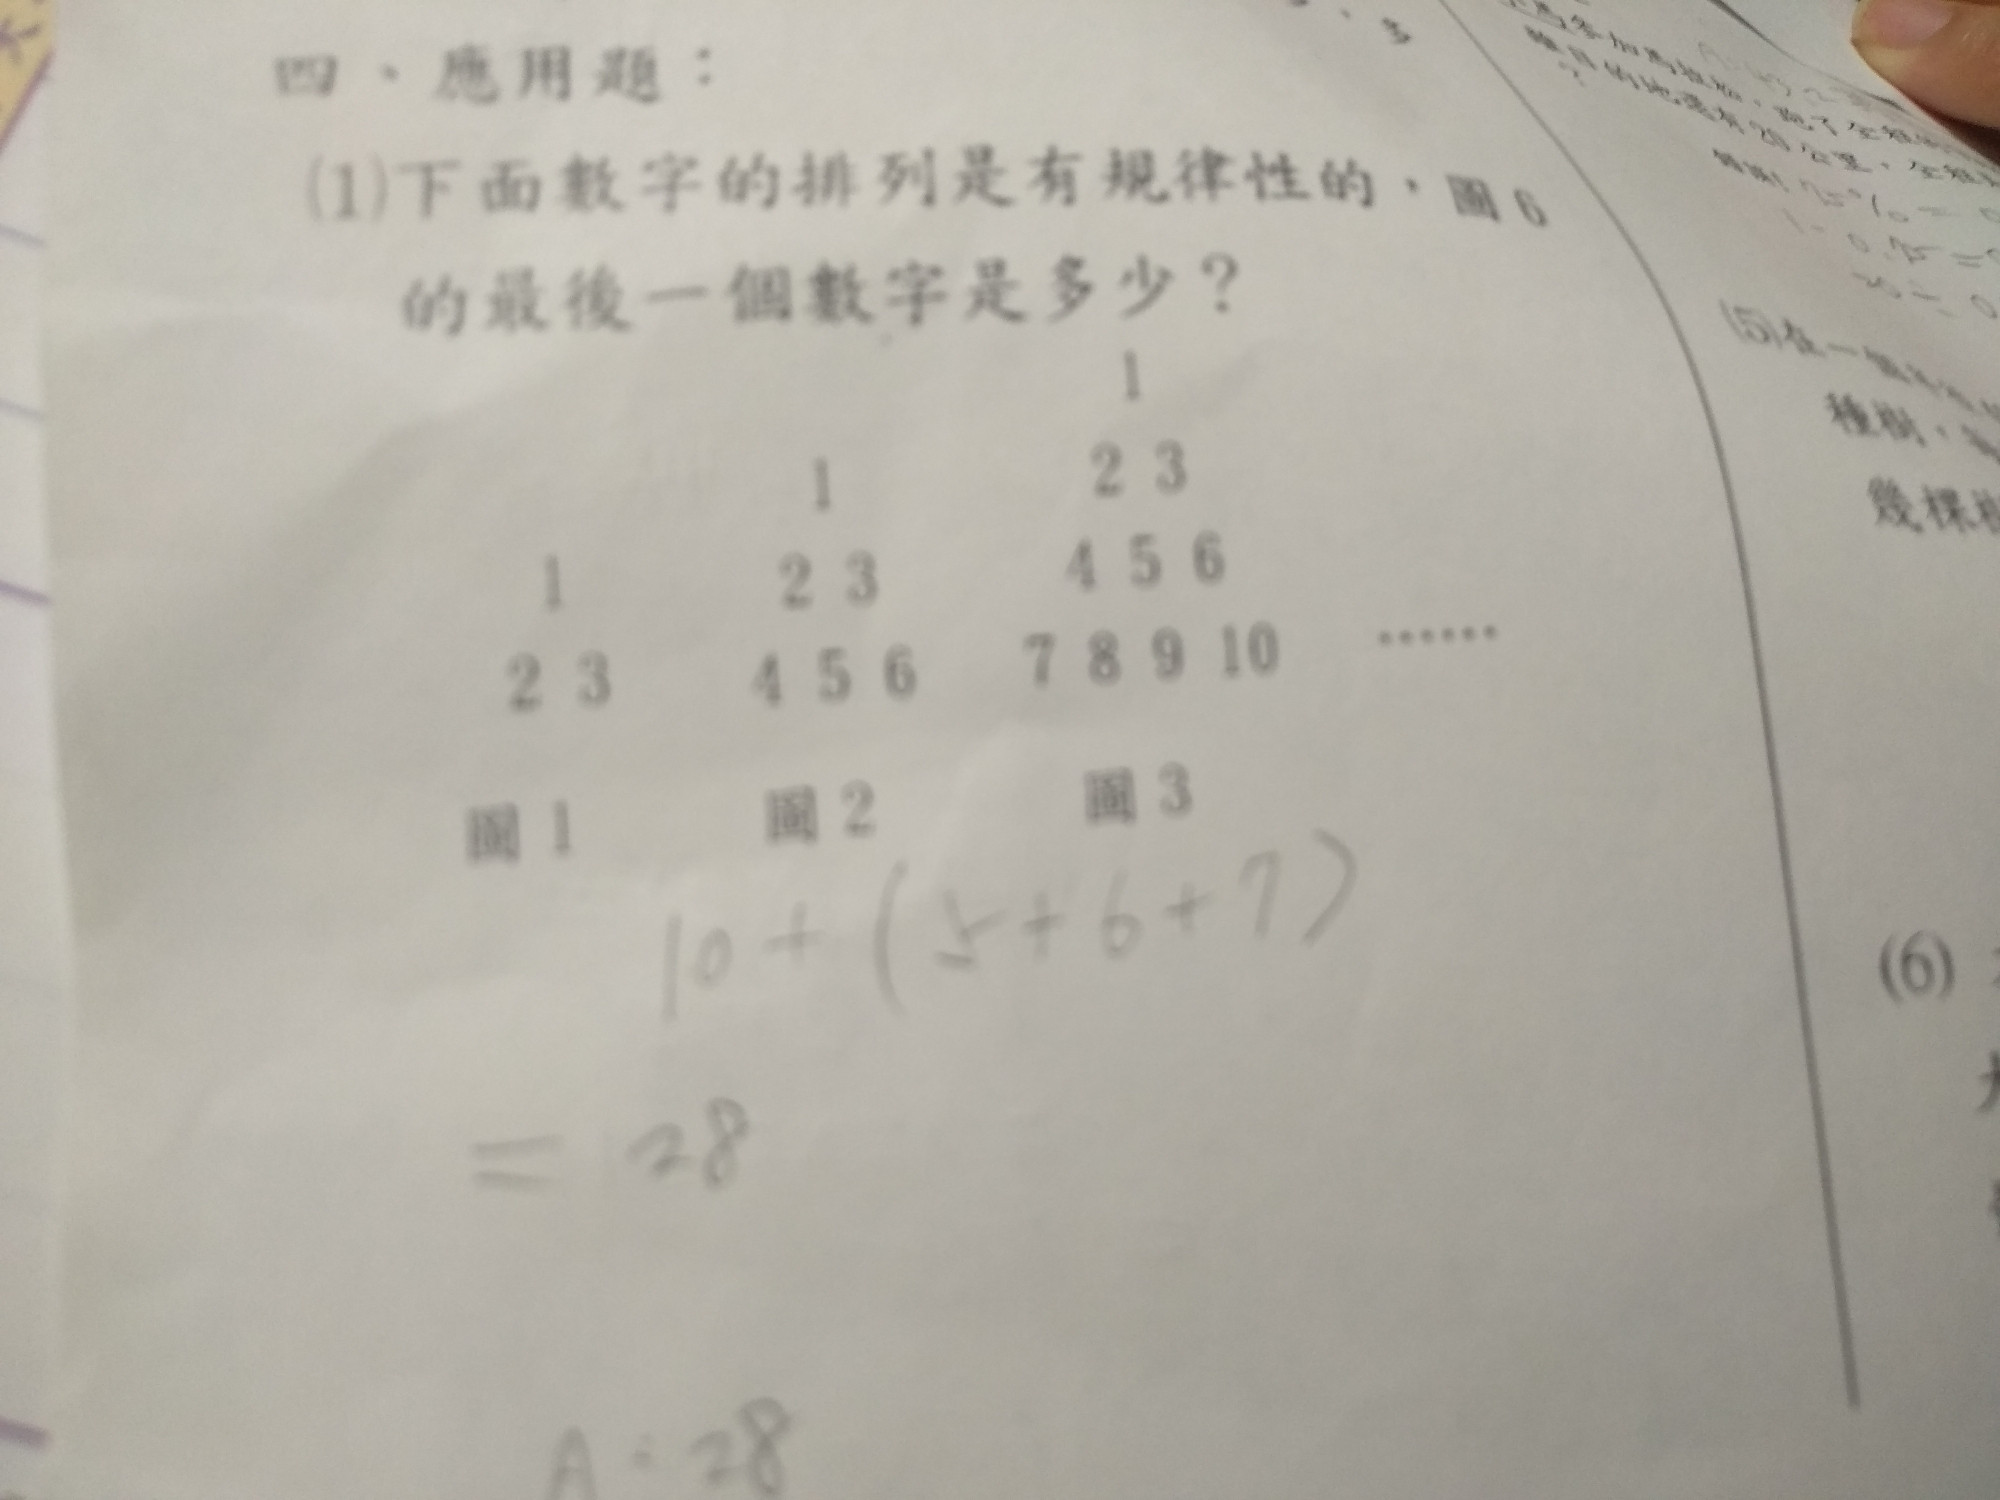 四、應用題：
(1)下面數字的排列是有規律性的，圖6
的最後一個數字是多少？
1
2 3
圖1
1
2 3
4 5 6
圖2
1
2 3
4 5 6
7 8 9 10
圖3
……
10+(5+6+7)
=28
A:28
目的地還有20公里，全程
(5)在一個
種樹，
幾棵樹
(6)